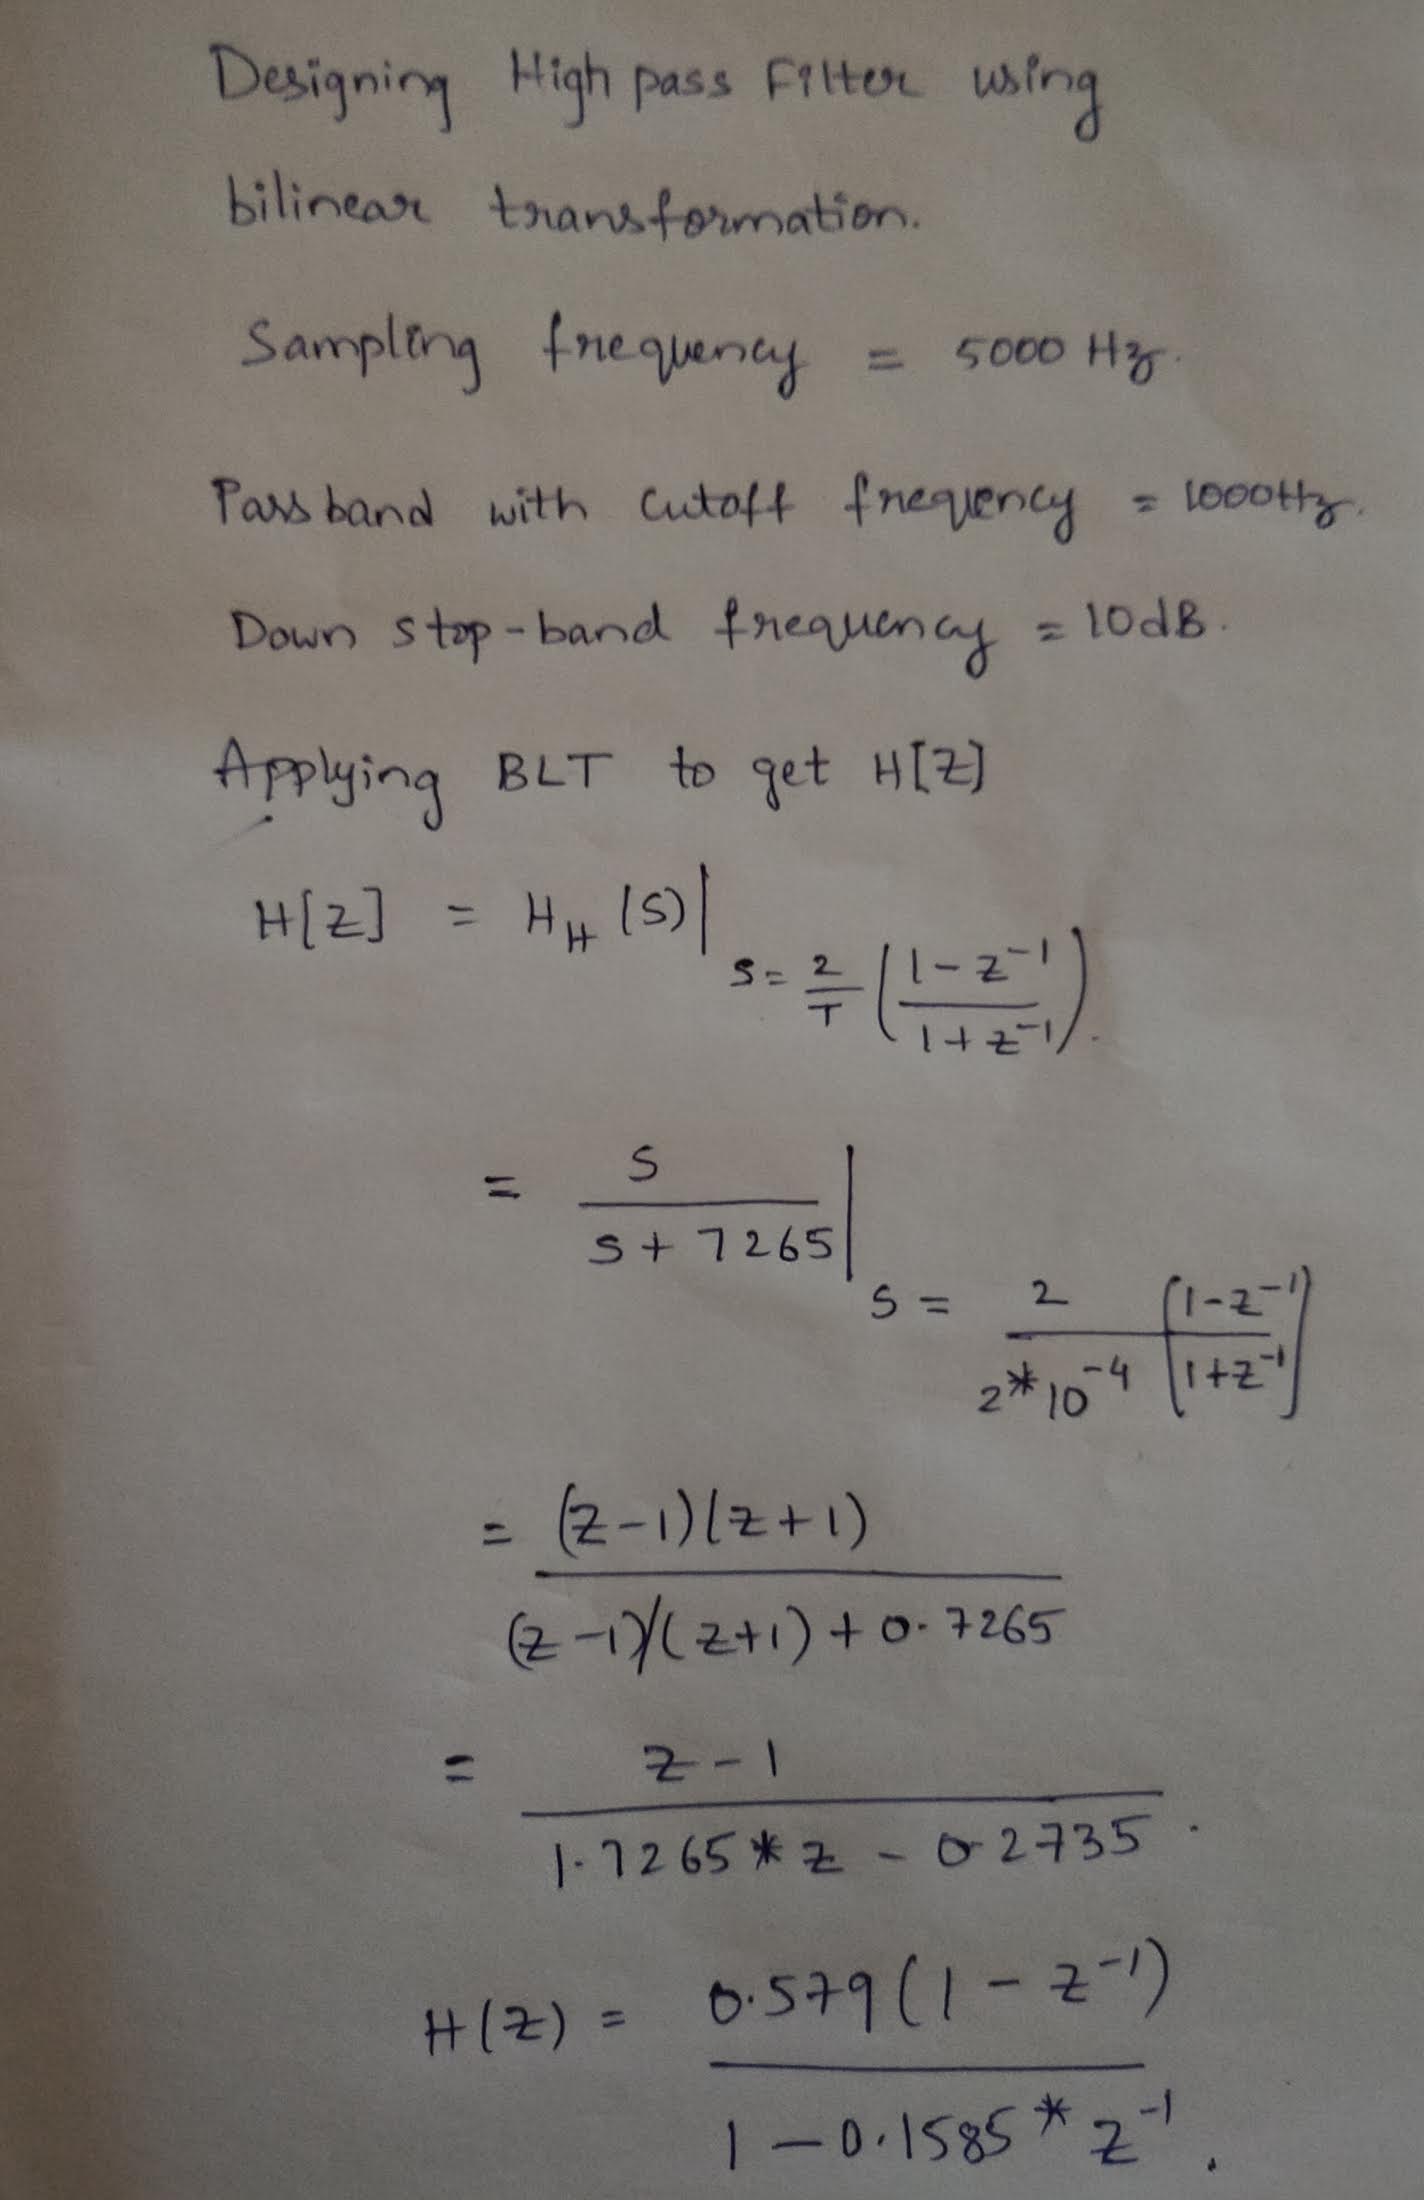 Designing High pass Filter using
bilinear transformation.
Sampling frequency = 5000 Hz.
Pass band with cutoff frequency = 1000Hz.
Down stop-band frequency = 10dB.
Applying BLT to get H[Z]
H[Z] = H_H (S)| S = 2/T ((1-z^-1)/(1+z^-1)).
= S/(S+7265)| S = 2/(2*10^-4) ((1-z^-1)/(1+z^-1))
= (z-1)(z+1)
(z-1)/(z+1)+0.7265
= z-1
1.7265*z - 0.2735.
H(Z) = 0.579(1-z^-1)
1-0.1585*z^-1.